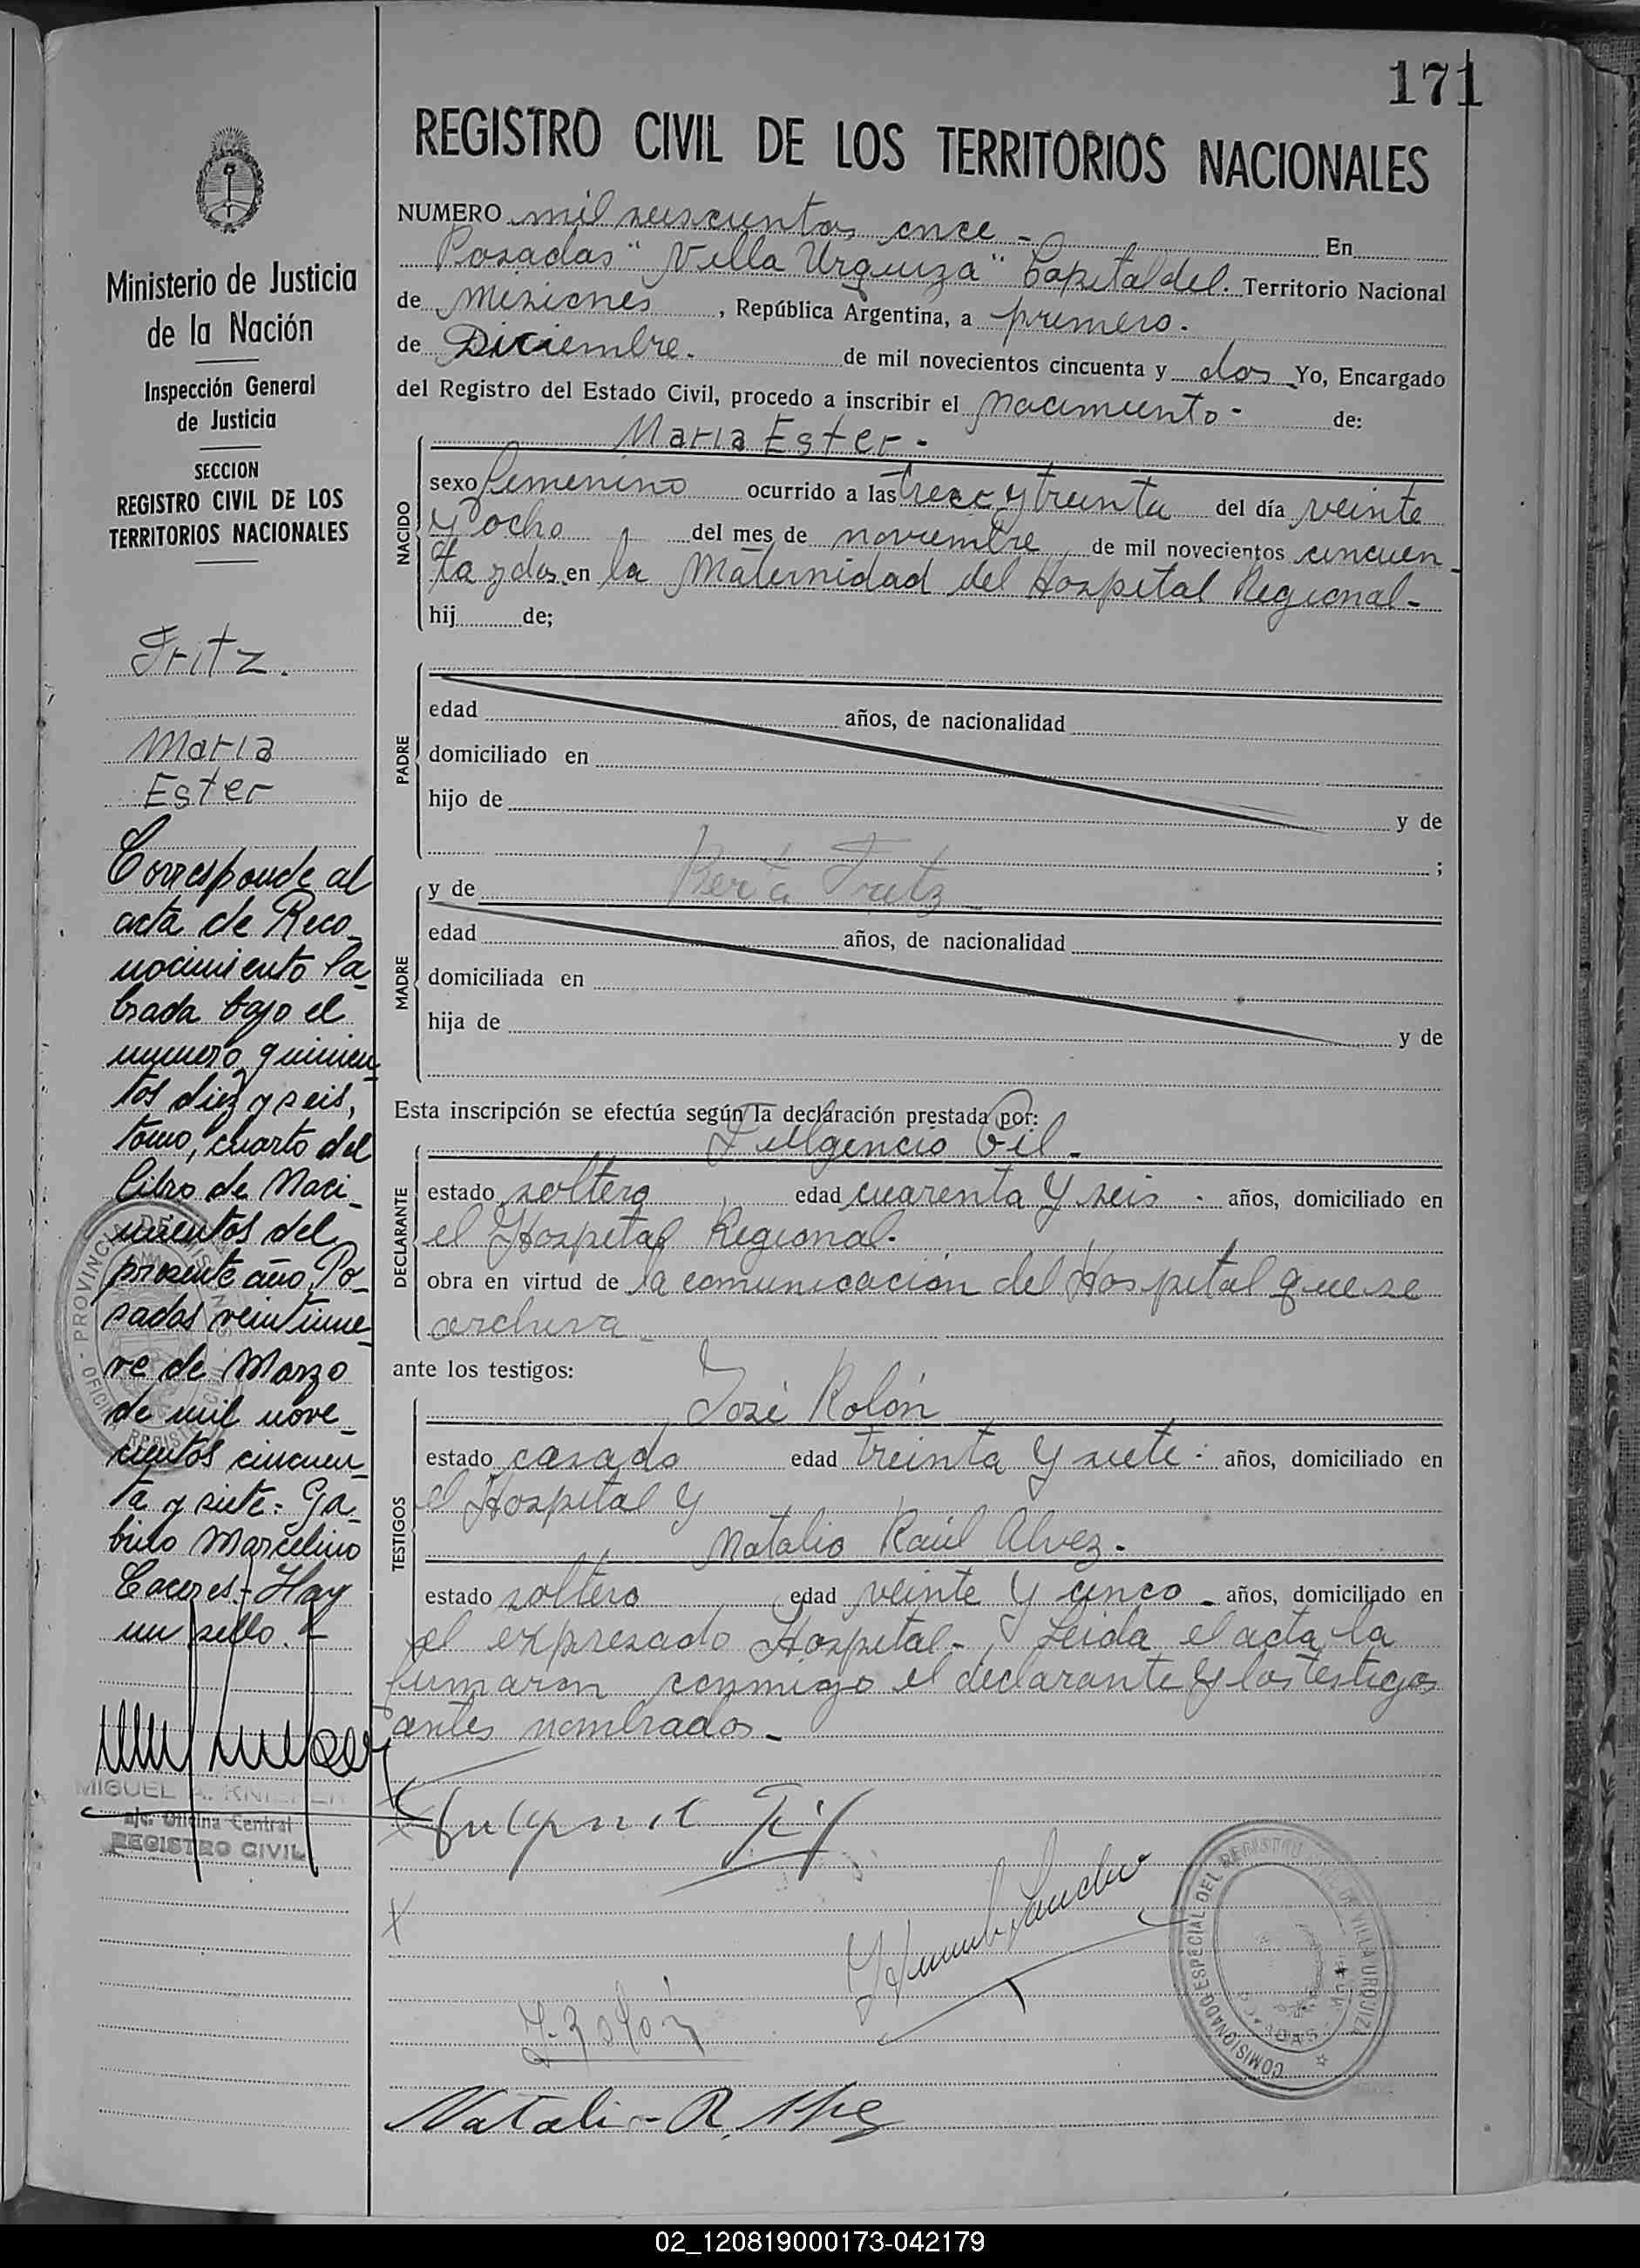 171
REGISTRO CIVIL DE LOS TERRITORIOS NACIONALES
Ministerio de Justicia
de la Nación
Inspección General
de Justicia
SECCION
REGISTRO CIVIL DE LOS
TERRITORIOS NACIONALES
Fritz.
Maria
Ester
Corresponde al
acta de Reco-
nocimiento la-
brada bajo el
numero quinien-
tos diez y seis,
tomo, cuarto del
libro de Naci-
mientos del
presente año, Po-
sadas veintinue-
ve de Marzo
de mil nove-
cientos cincuen-
ta y siete.- Ga-
bino Marcelino
Caceres.- Hay
un sello.-
MIGUEL A.
a/c. Oficina Central
REGISTRO CIVIL
NUMERO mil seiscientos once - En
Posadas "Villa Urquiza" Capital del. Territorio Nacional
de Misiones , República Argentina, a primero.
de Diciembre. de mil novecientos cincuenta y dos Yo, Encargado
del Registro del Estado Civil, procedo a inscribir el nacimiento - de:
Maria Ester -
NACIDO
sexo femenino ocurrido a las trece y treinta del día veinte
y ocho del mes de noviembre de mil novecientos cincuen-
ta y dos en la Maternidad del Hospital Regional-
hij de;
PADRE
edad años, de nacionalidad
domiciliado en
hijo de y de
;
MADRE
y de Berta Fritz
edad años, de nacionalidad
domiciliada en
hija de y de
Esta inscripción se efectúa según la declaración prestada por:
Fulgencio Gil -
DECLARANTE
estado soltero edad cuarenta y seis - años, domiciliado en
el Hospital Regional.
obra en virtud de la comunicación del Hospital que se
archiva -
ante los testigos:
José Rolón
TESTIGOS
estado casado edad treinta y siete - años, domiciliado en
el Hospital y
Natalio Raúl Alvez -
estado soltero edad veinte y cinco - años, domiciliado en
el expresado Hospital - Leida el acta la
firmaron conmigo el declarante y los testigos
antes nombrados -
J. Rolón
Natalio R. Alvez
PROVINCIA DE MISIONES
COMISIONADO ESPECIAL DEL REGISTRO DE VILLA URQUIZA
02_120819000173-042179